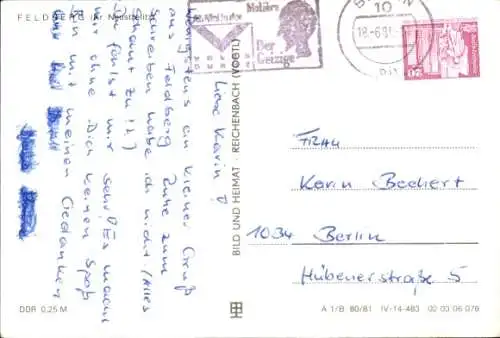 FELDBERG Kr Neustrelitz
Molière
Der
Geizige
BERLIN
10
18.-6.81.
20
Liebe Karin!
Wenigstens ein kleiner Gruß
aus Feldberg. Ruhe zum
Schreiben habe ich nicht (Alles
bekannt zu!?)
Du fehlst mir sehr! Es macht
mir ohne Dich keinen Spaß
Bin mit meinen Gedanken
BILD UND HEIMAT · REICHENBACH (VOGTL)
FRAU
Karin Bechert
1034 Berlin
Hübenerstraße 5
DDR 0,25 M
A 1/B 80/81 IV-14-483 02 03 06 076